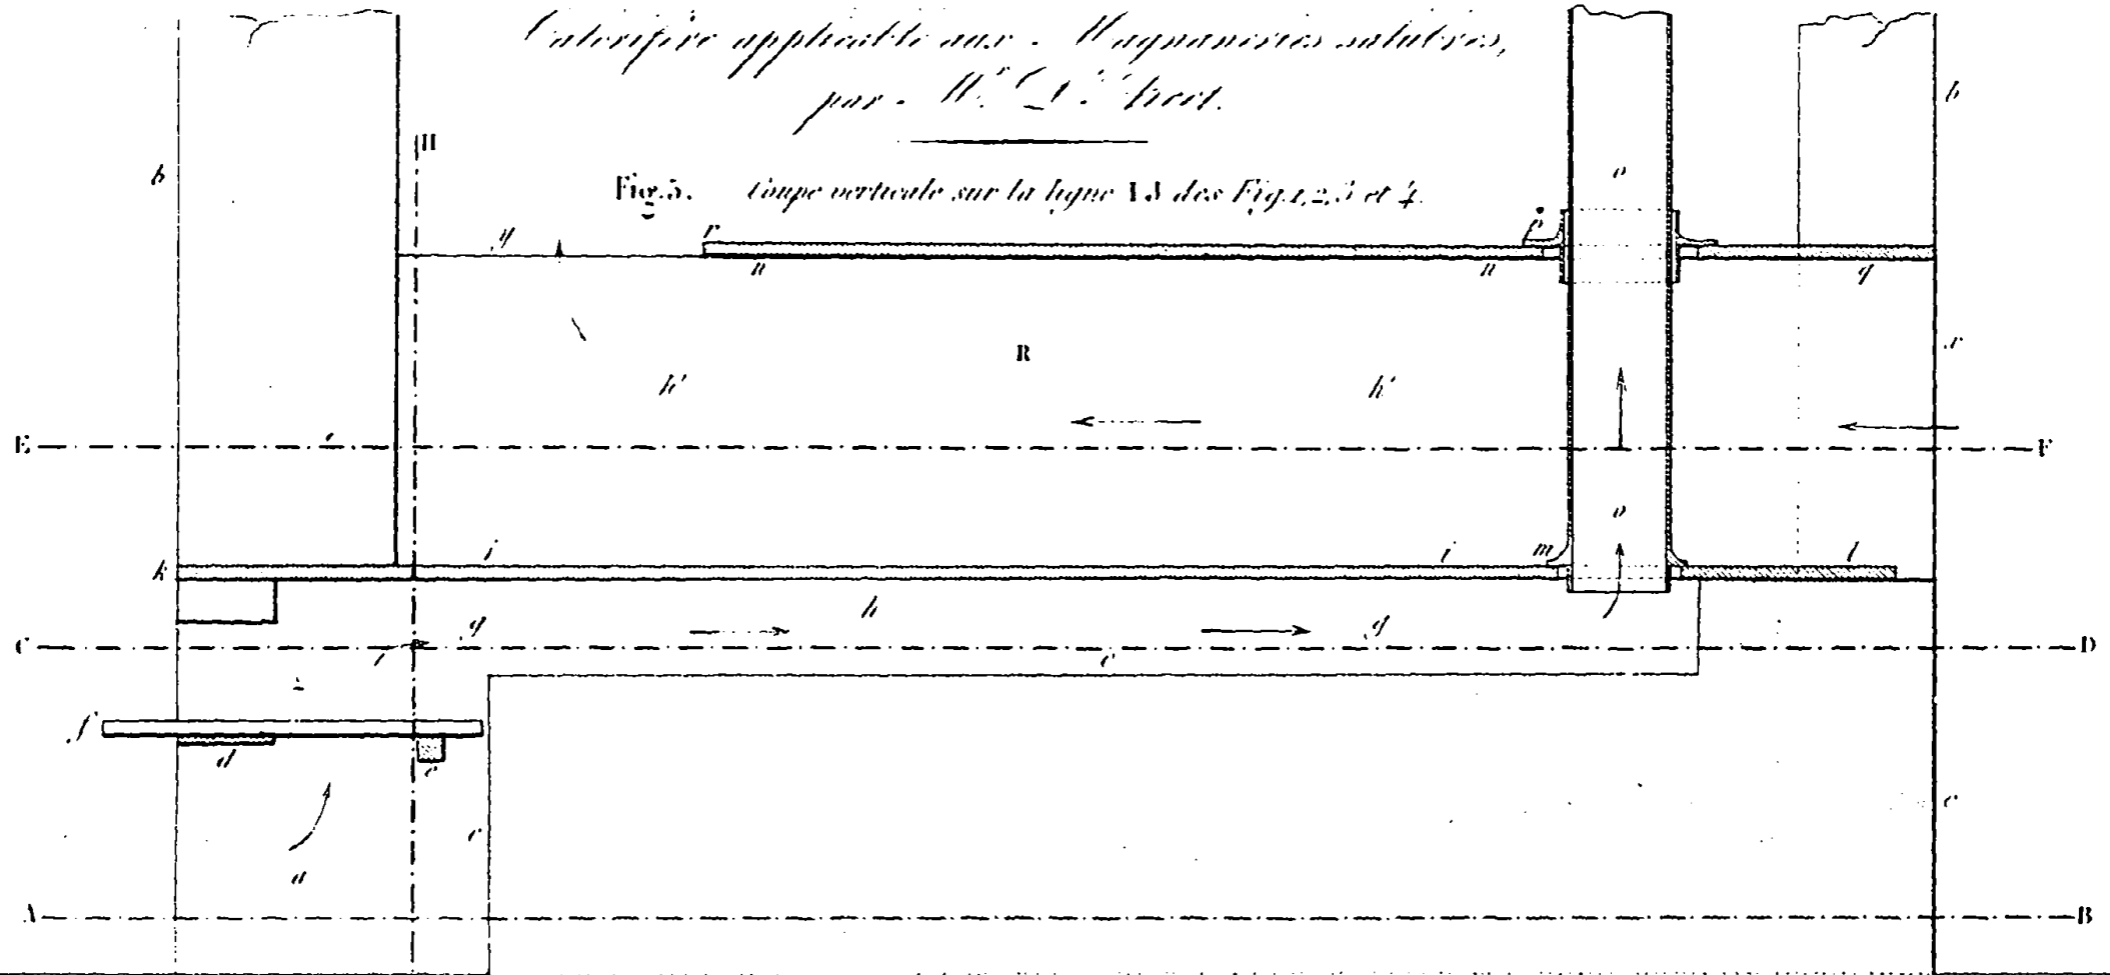 Calorifère applicable aux Magnaneries salubres,
par Mr. D'Arcet.
H
b
b
Fig. 5. Coupe verticale sur la ligne IJ des Fig. 1, 2, 3 et 4.
o
y r p
n n q
R x
h' h'
E F
o
k i i m l
h
g g
C D
c
f
d e
c c
a
A B